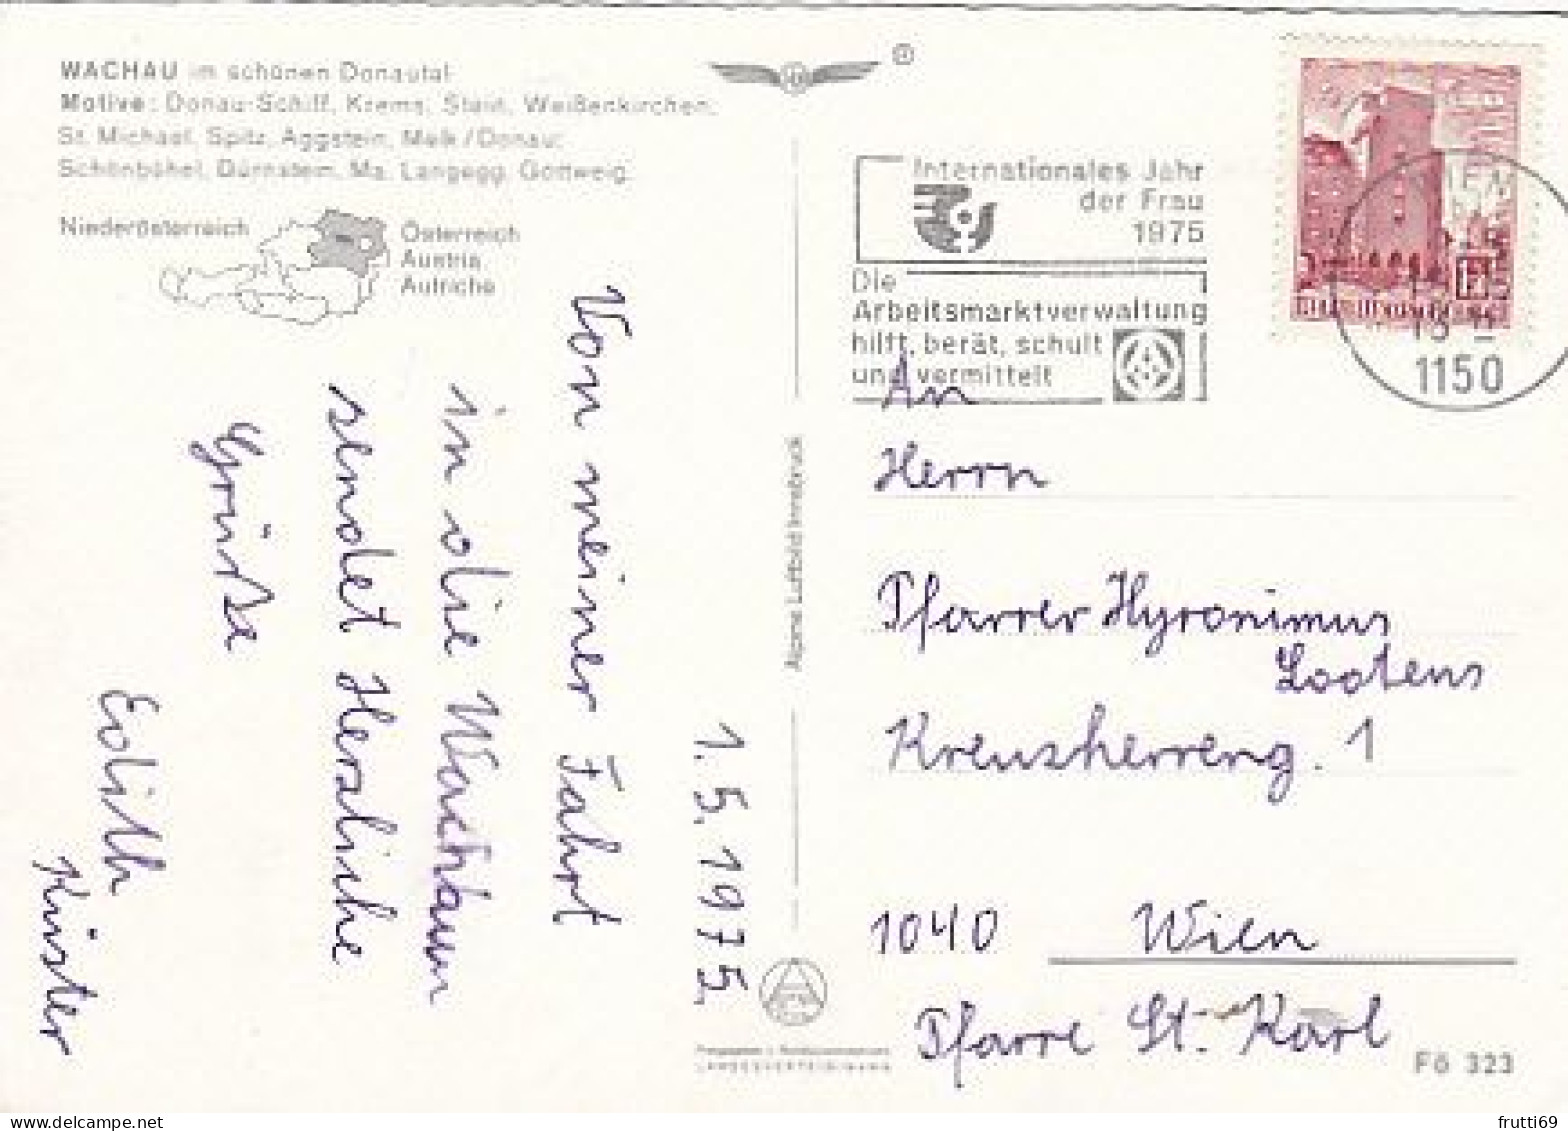 WACHAU im schönen Donautal
Motive: Donau-Schiff, Krems, Stein, Weißenkirchen,
St. Michael, Spitz, Aggstein, Melk/Donau,
Schönbühel, Dürnstein, Ma. Langegg, Göttweig.
Niederösterreich
Österreich
Austria
Autriche
1.5.1975.
Von meiner Fahrt
in die Wachau
sendet Herzliche
Grüße
Edith
Küster
Alpine Luftbild Innsbruck
LANDESVERTEIDIGUNG
Internationales Jahr
der Frau
1975
Die
Arbeitsmarktverwaltung
hilft, berät, schult
und vermittelt
WIEN
1150
An
Herrn
Pfarrer Hyronimus
Lootens
Kreuzherreng. 1
1040 Wien
Pfarre St. Karl
Fö 323
frutti69